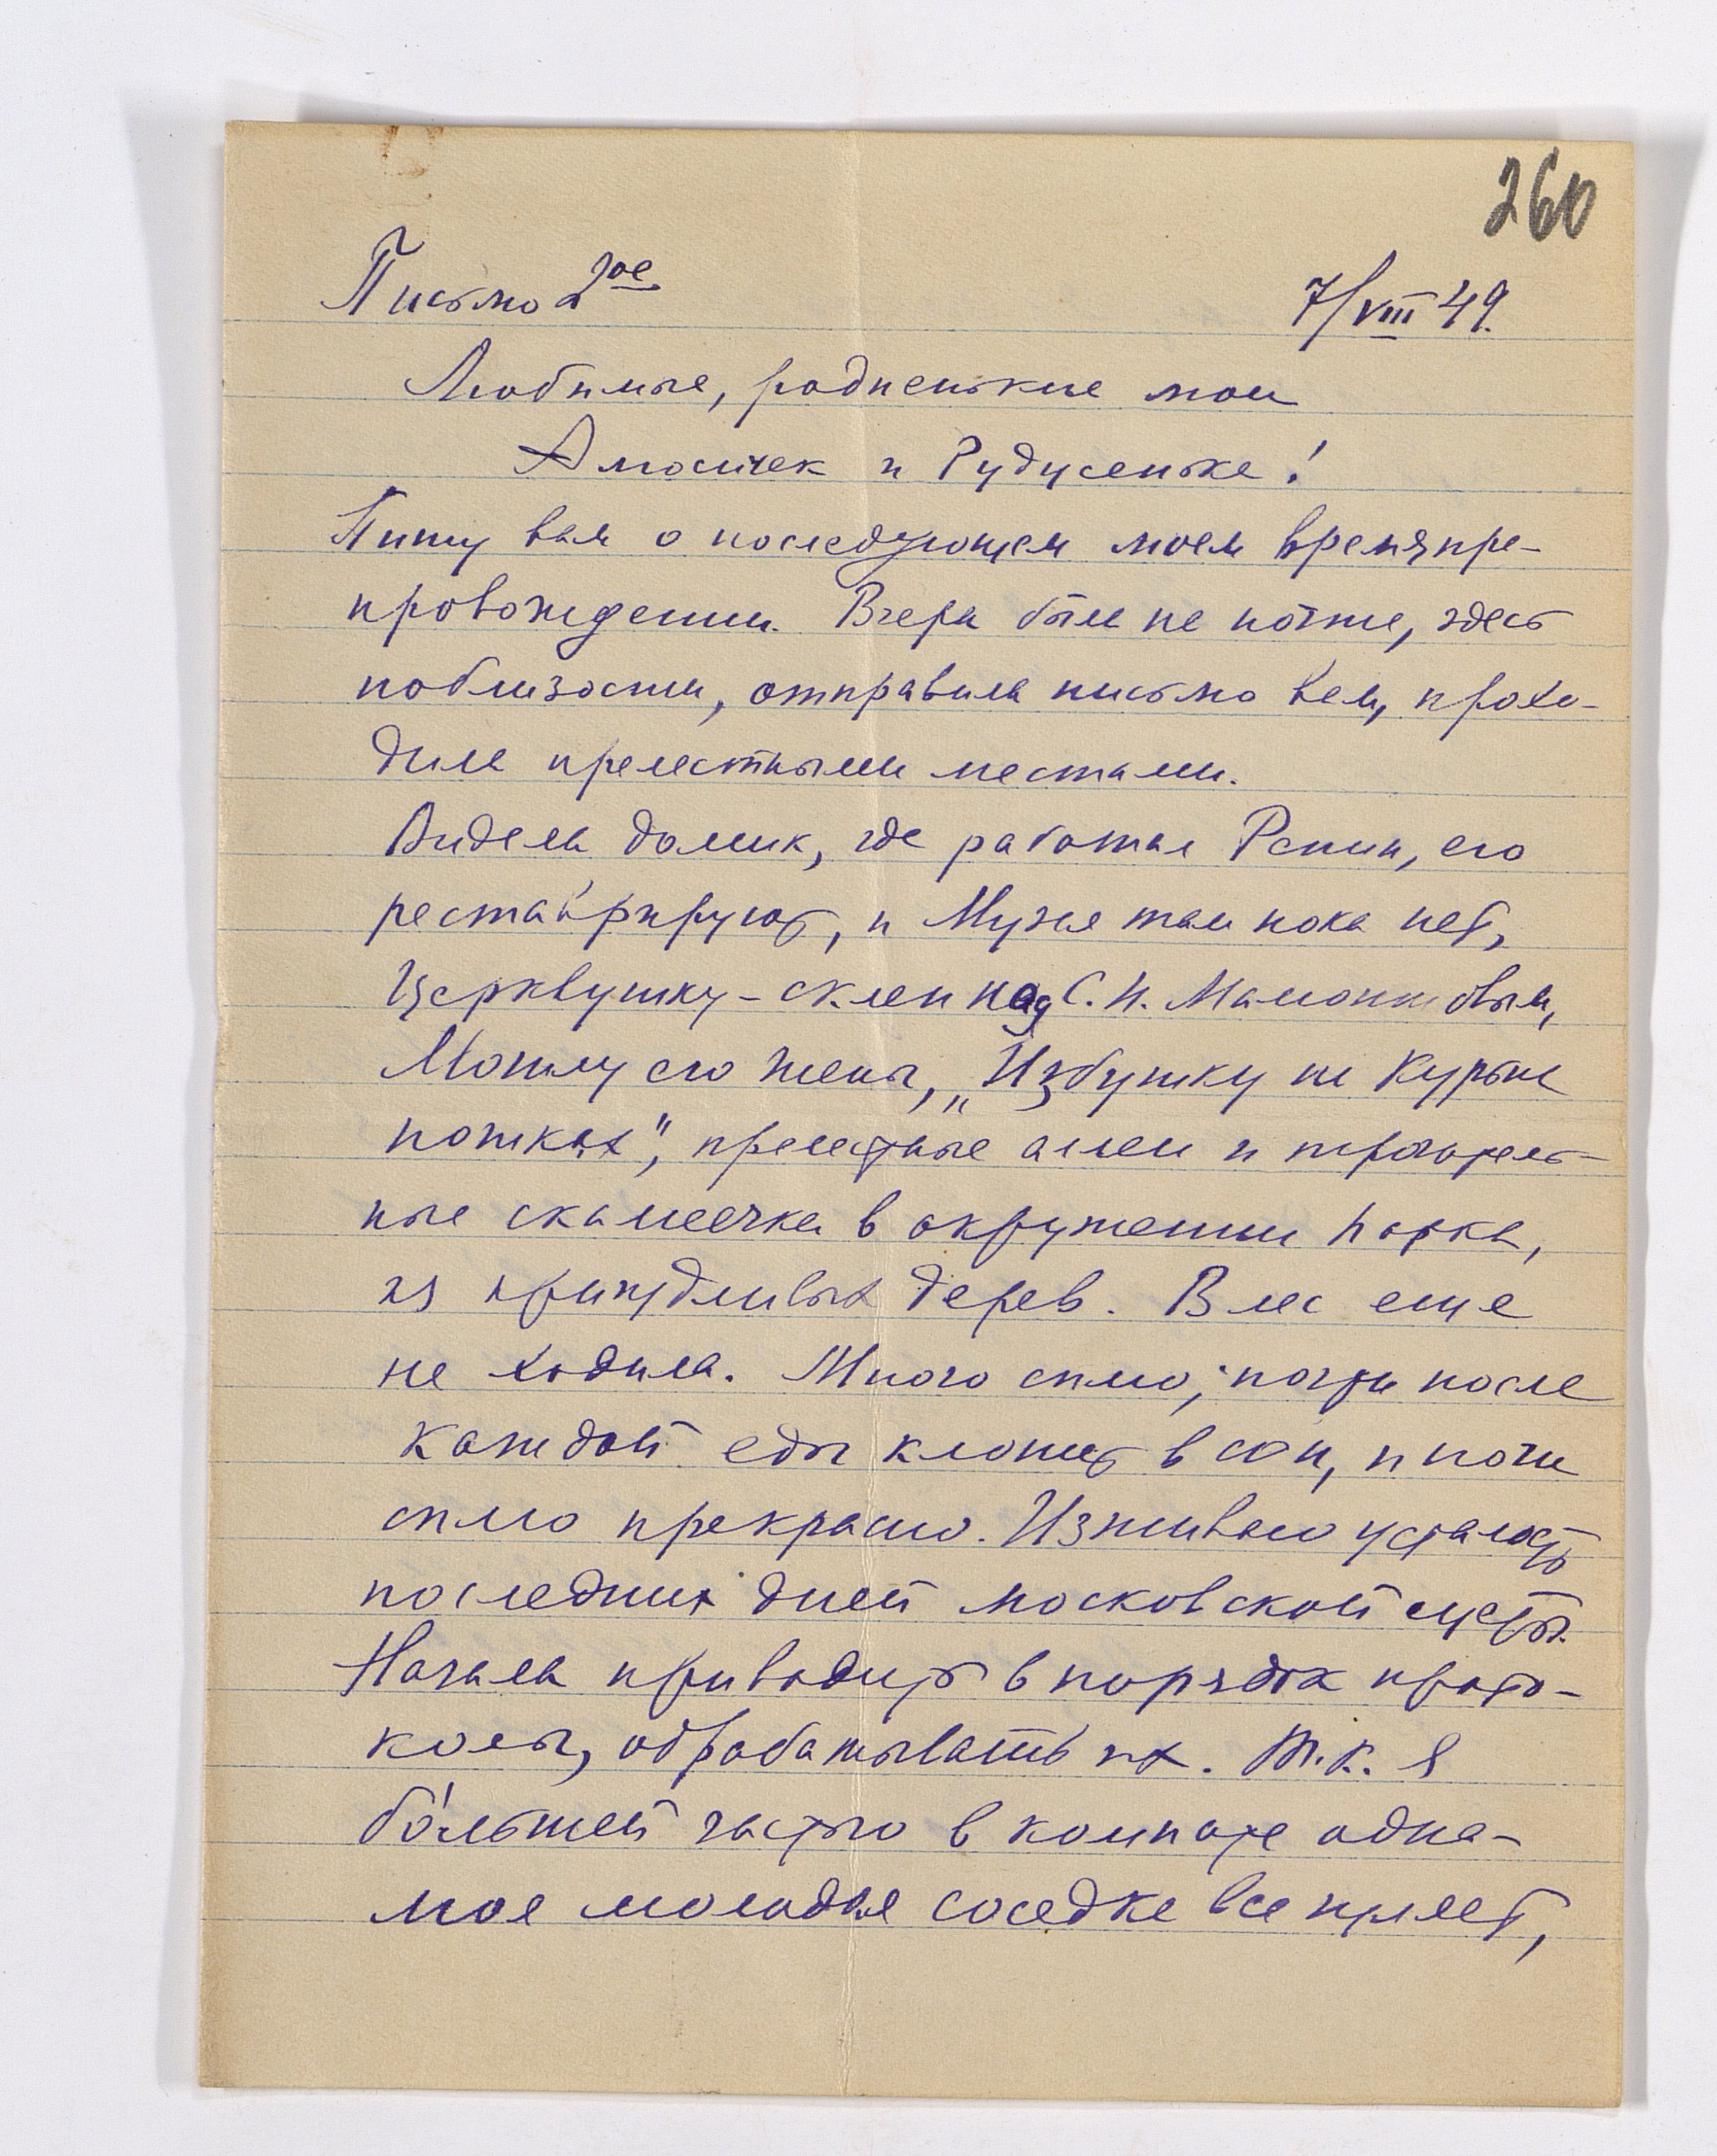 260
Письмо 2ое
7/VIII 49.
Любимые, родненькие мои
Амосичек и Рудусенька!
Пишу вам о последующем моем времяпре-
провождении. Вчера была на почте, здесь
поблизости, отправила письмо вам, прохо-
дила прелестными местами.
Видела домик, где работал Репин, его
реставрируют, и Музея там пока нет,
Церквушку-склеп над С. И. Мамонтовым,
Могилу его жены, „Избушку на Курьих
ножках", прелестные аллеи и трогатель-
ные скамеечки в окружении парка,
из причудливых дерев. В лес еще
не ходила. Много сплю, почти после
каждой еды клонит в сон, и ночи
сплю прекрасно. Изживаю усталость
последних дней московской суеты.
Начала приводить в порядок прото-
колы, обрабатывать их. Т.к. я
бо́льшей частью в комнате одна-
моя молодая соседка все гуляет,